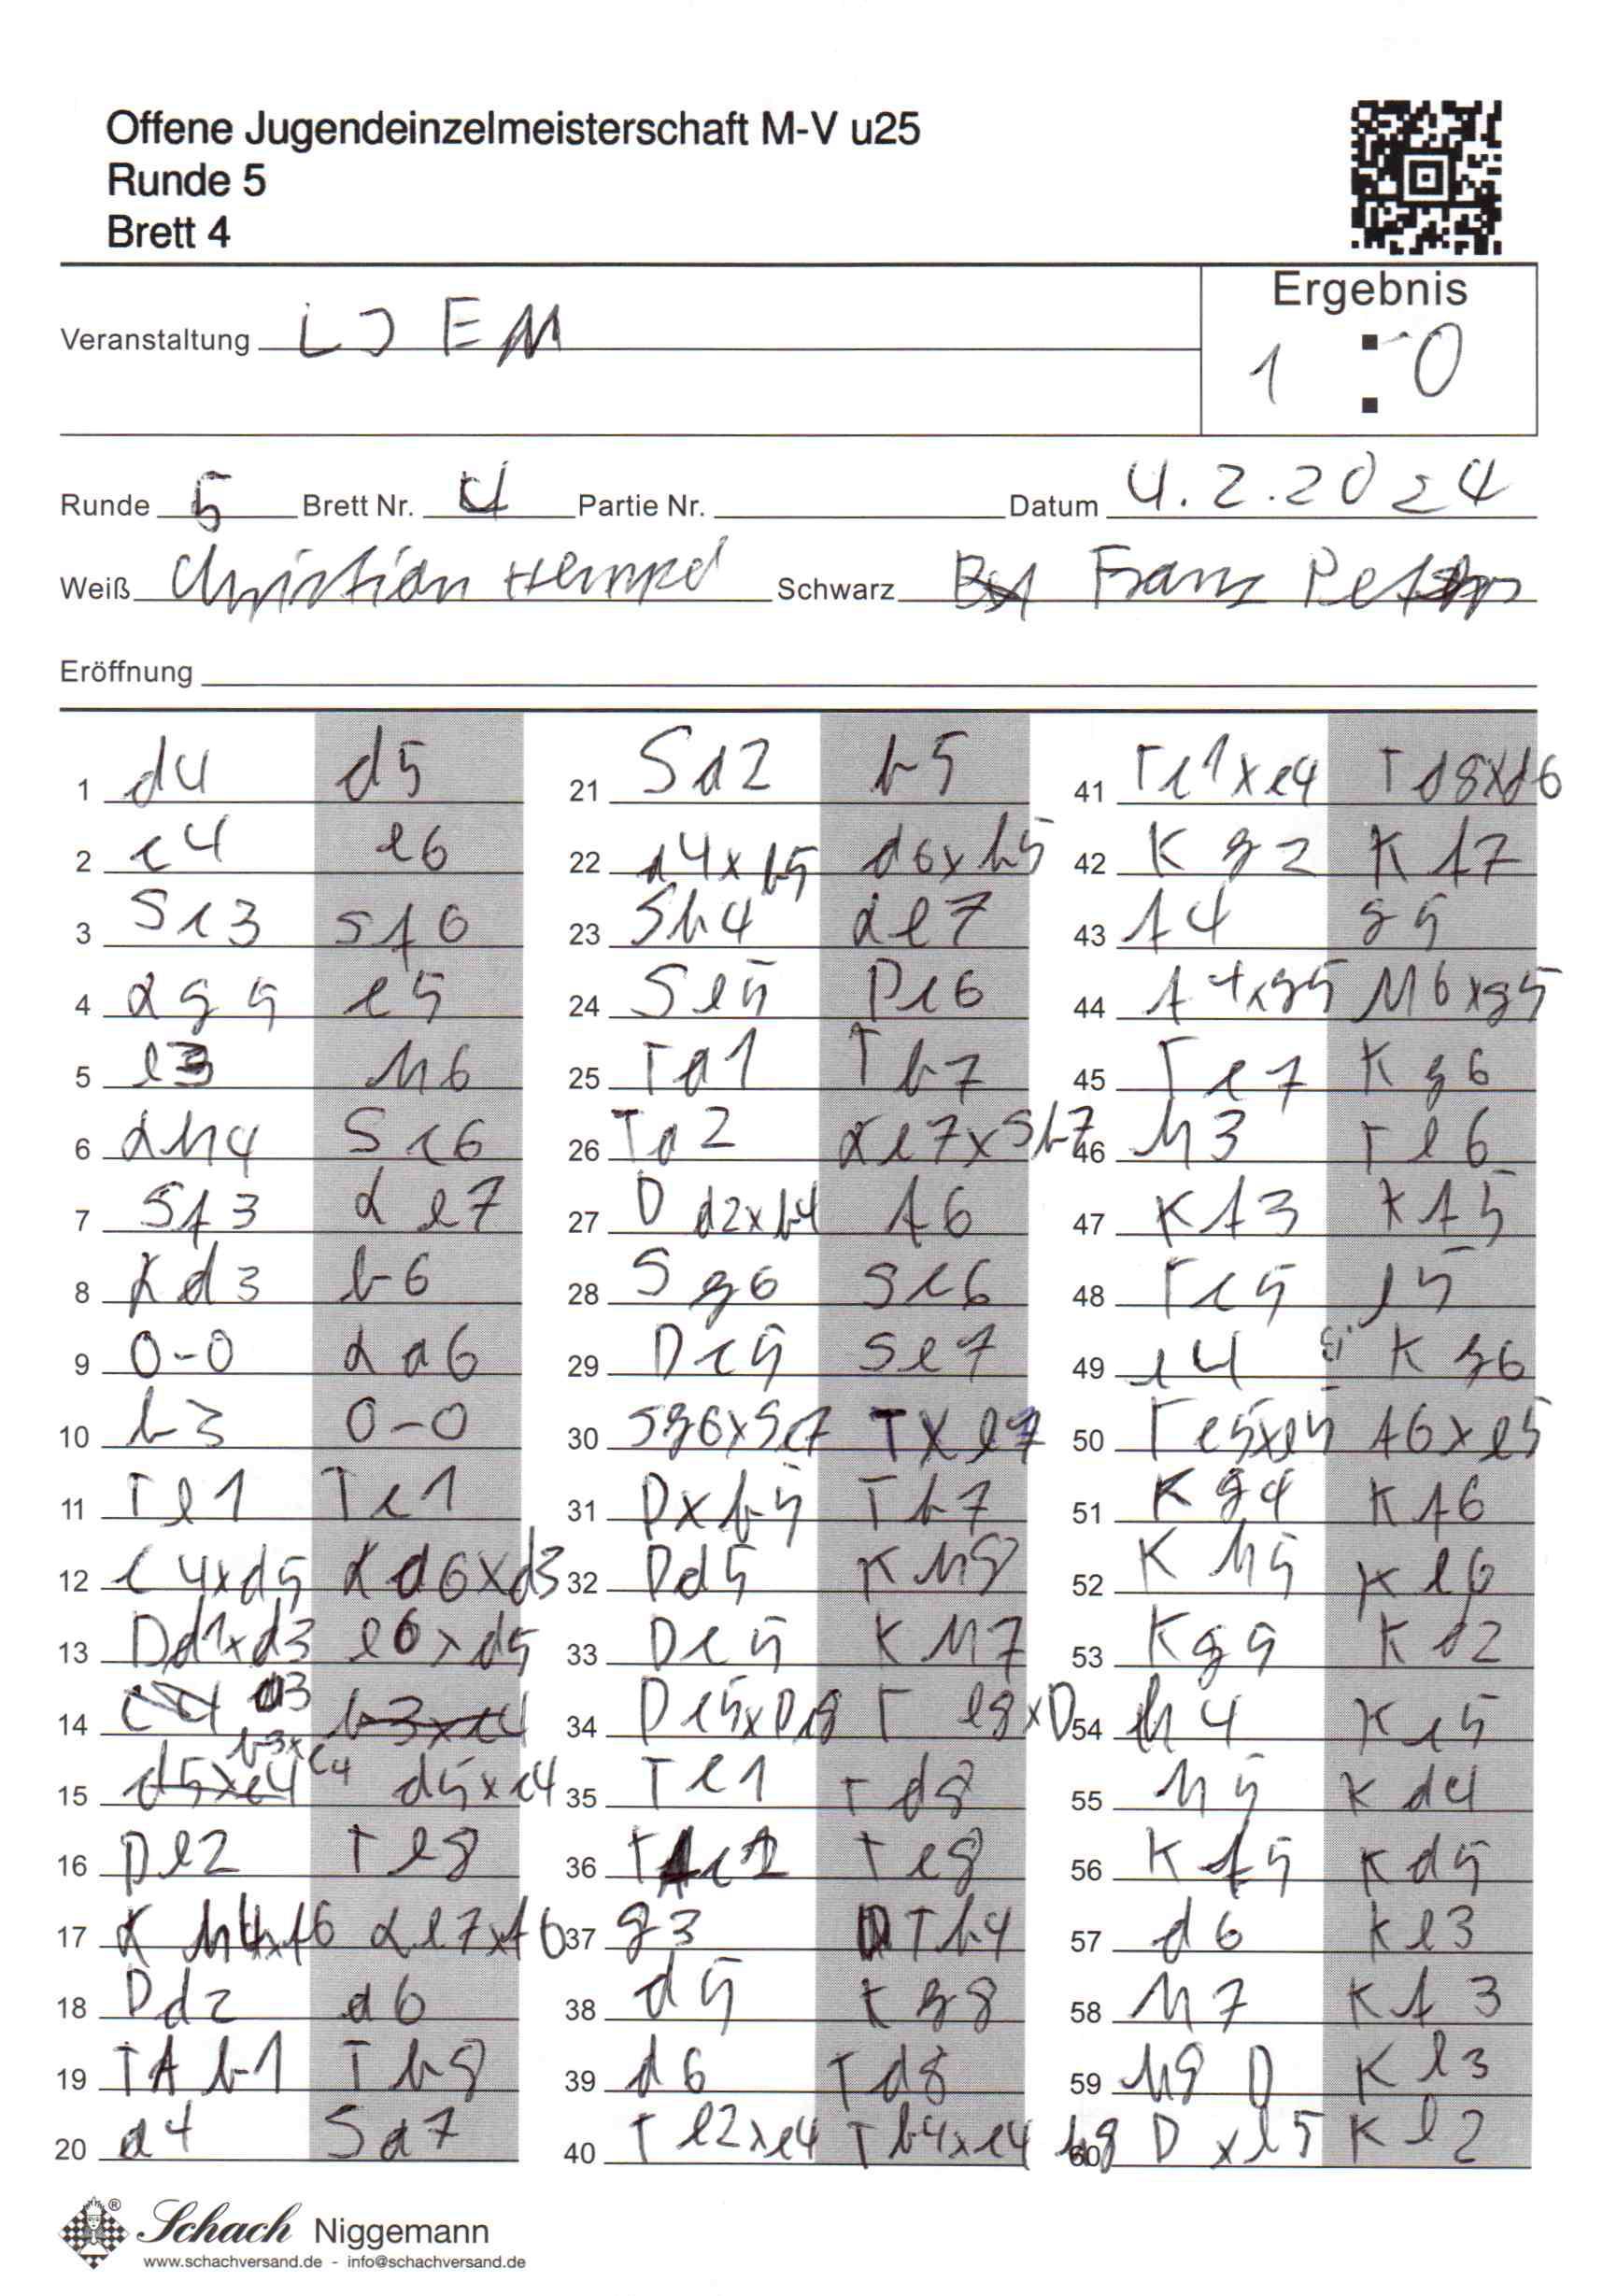 Offene Jugendeinzelmeisterschaft M-V u25
Runde 5
Brett 4
Ergebnis
1 : 0
Veranstaltung LJEM
Runde 5 Brett Nr. 4 Partie Nr. Datum 4.2.2024
Weiß Christian Hempel Schwarz Franz Peters
Eröffnung
1 d4 d5
2 c4 e6
3 Sc3 Sf6
4 Lg5 c5
5 e3 h6
6 Lh4 Sc6
7 Sf3 Le7
8 Ld3 b6
9 0-0 La6
10 b3 0-0
11 Te1 Tc1
12 c4xd5 La6xd3
13 Dd1xd3 e6xd5
14 a3 c4
15 b3xc4 d5xc4
16 De2 Te8
17 Lh4xf6 Le7xf6
18 Dd2 a6
19 TAb1 Tb8
20 a4 Sa7
21 Sa2 b5
22 a4xb5 a6xb5
23 Sb4 Le7
24 Se5 Dc6
25 Ta1 Tb7
26 Ta2 Le7xSb7
27 Dd2xb4 f6
28 Sg6 Sc6
29 Dc5 Se7
30 Sg6xSe7 Txe7
31 Dxb5 Tb7
32 Dd5 Kh8
33 Dc5 Kh7
34 Dc5xDc8 Te8xD
35 Te1 Td8
36 Tc2 Tc8
37 g3 Tb4
38 d5 Kg8
39 d6 Td8
40 Te2xc4 Tb4xc4
41 Tc1xc4 Td8xd6
42 Kg2 Kf7
43 f4 g5
44 f4xg5 h6xg5
45 Tc7 Kg6
46 h3 Te6
47 Kf3 Kf5
48 Tc5 e5
49 e4 Kg6
50 Tc5xe5 f6xe5
51 Kg4 Kf6
52 Kh5 Ke6
53 Kg5 Kd2
54 h4 Kc5
55 h5 Kd4
56 Kf5 Kd5
57 d6 Ke3
58 h7 Kf3
59 h8D Ke3
60 h8Dxe5 Ke2
Schach Niggemann
www.schachversand.de - info@schachversand.de